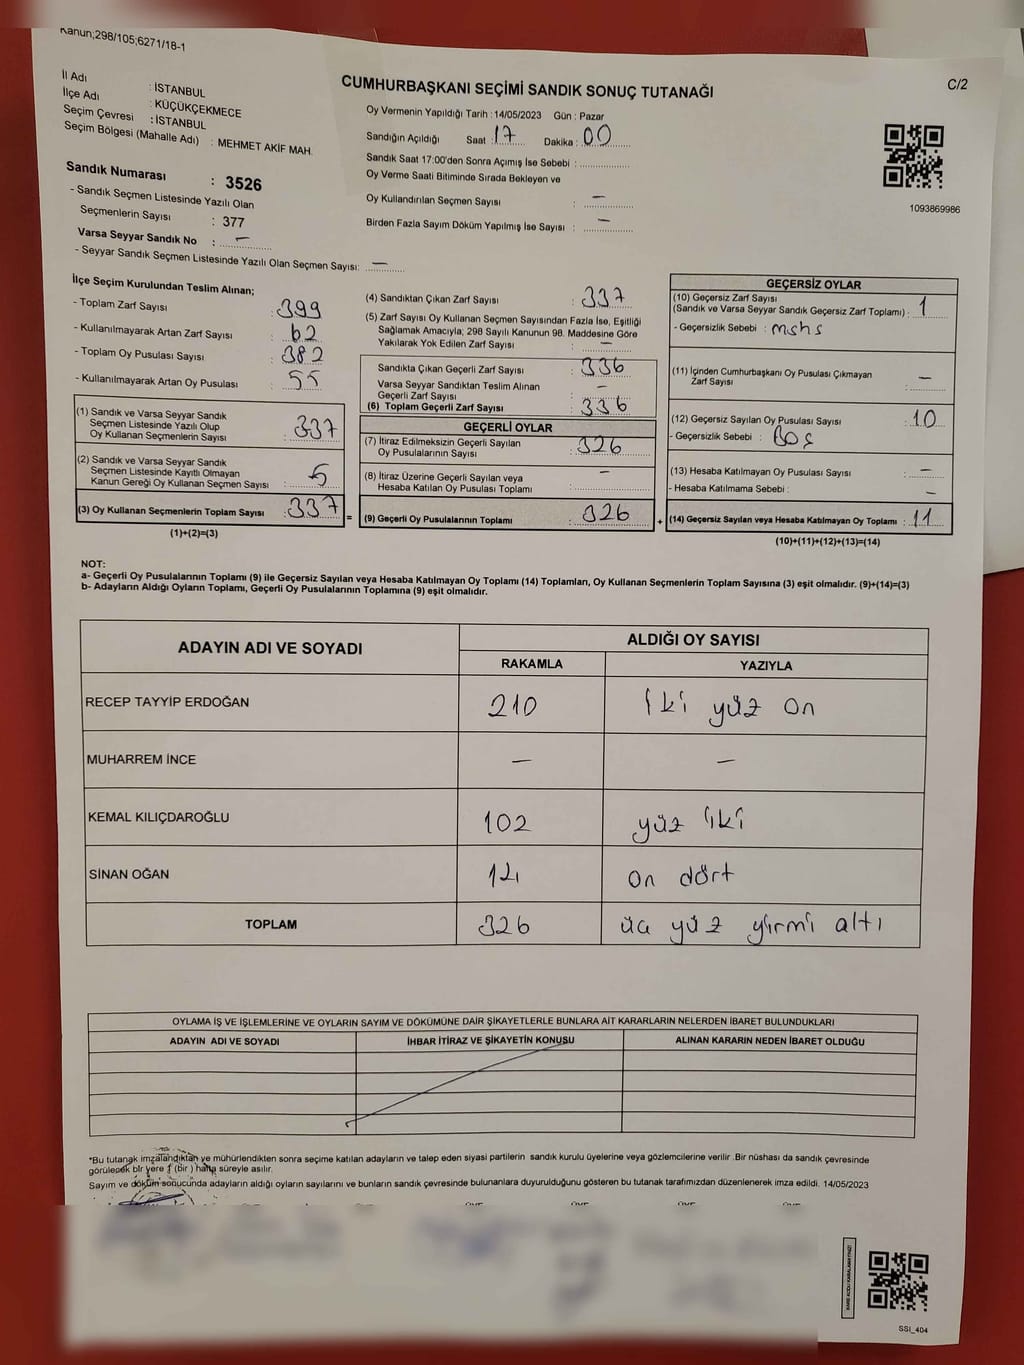 Kanun;298/105;6271/18-1
C/2
CUMHURBAŞKANI SEÇİMİ SANDIK SONUÇ TUTANAĞI
İl Adı : İSTANBUL
İlçe Adı : KÜÇÜKÇEKMECE
Seçim Çevresi : İSTANBUL
Seçim Bölgesi (Mahalle Adı) : MEHMET AKİF MAH.
Sandık Numarası : 3526
- Sandık Seçmen Listesinde Yazılı Olan
Seçmenlerin Sayısı : 377
Varsa Seyyar Sandık No : -
- Seyyar Sandık Seçmen Listesinde Yazılı Olan Seçmen Sayısı: -
Oy Vermenin Yapıldığı Tarih : 14/05/2023 Gün : Pazar
Sandığın Açıldığı Saat : 17 Dakika : 00
Sandık Saat 17:00'den Sonra Açımış İse Sebebi :
Oy Verme Saati Bitiminde Sırada Bekleyen ve
Oy Kullandırılan Seçmen Sayısı : -
Birden Fazla Sayım Döküm Yapılmış İse Sayısı : -
1093869986
İlçe Seçim Kurulundan Teslim Alınan;
- Toplam Zarf Sayısı : 399
- Kullanılmayarak Artan Zarf Sayısı : 62
- Toplam Oy Pusulası Sayısı : 382
- Kullanılmayarak Artan Oy Pusulası : 55
(1) Sandık ve Varsa Seyyar Sandık
Seçmen Listesinde Yazılı Olup
Oy Kullanan Seçmenlerin Sayısı : 337
(2) Sandık ve Varsa Seyyar Sandık
Seçmen Listesinde Kayıtlı Olmayan
Kanun Gereği Oy Kullanan Seçmen Sayısı :
(3) Oy Kullanan Seçmenlerin Toplam Sayısı : 337
(1)+(2)=(3)
(4) Sandıktan Çıkan Zarf Sayısı : 337
(5) Zarf Sayısı Oy Kullanan Seçmen Sayısından Fazla İse, Eşitliği
Sağlamak Amacıyla; 298 Sayılı Kanunun 98. Maddesine Göre
Yakılarak Yok Edilen Zarf Sayısı : -
Sandıkta Çıkan Geçerli Zarf Sayısı : 336
Varsa Seyyar Sandıktan Teslim Alınan
Geçerli Zarf Sayısı : -
(6) Toplam Geçerli Zarf Sayısı : 336
GEÇERLİ OYLAR
(7) İtiraz Edilmeksizin Geçerli Sayılan
Oy Pusulalarının Sayısı : 326
(8) İtiraz Üzerine Geçerli Sayılan veya
Hesaba Katılan Oy Pusulası Toplamı : -
= (9) Geçerli Oy Pusulalarının Toplamı : 326
GEÇERSİZ OYLAR
(10) Geçersiz Zarf Sayısı
(Sandık ve Varsa Seyyar Sandık Geçersiz Zarf Toplamı) : 1
- Geçersizlik Sebebi : mshs
(11) İçinden Cumhurbaşkanı Oy Pusulası Çıkmayan
Zarf Sayısı : -
(12) Geçersiz Sayılan Oy Pusulası Sayısı : 10
- Geçersizlik Sebebi : Boş
(13) Hesaba Katılmayan Oy Pusulası Sayısı : -
- Hesaba Katılmama Sebebi : -
+ (14) Geçersiz Sayılan veya Hesaba Katılmayan Oy Toplamı : 11
(10)+(11)+(12)+(13)=(14)
NOT:
a- Geçerli Oy Pusulalarının Toplamı (9) ile Geçersiz Sayılan veya Hesaba Katılmayan Oy Toplamı (14) Toplamları, Oy Kullanan Seçmenlerin Toplam Sayısına (3) eşit olmalıdır. (9)+(14)=(3)
b- Adayların Aldığı Oyların Toplamı, Geçerli Oy Pusulalarının Toplamına (9) eşit olmalıdır.
ADAYIN ADI VE SOYADI ALDIĞI OY SAYISI
RAKAMLA YAZIYLA
RECEP TAYYİP ERDOĞAN 210 İki yüz on
MUHARREM İNCE - -
KEMAL KILIÇDAROĞLU 102 yüz iki
SİNAN OĞAN 14 on dört
TOPLAM 326 üç yüz yirmi altı
OYLAMA İŞ VE İŞLEMLERİNE VE OYLARIN SAYIM VE DÖKÜMÜNE DAİR ŞİKAYETLERLE BUNLARA AİT KARARLARIN NELERDEN İBARET BULUNDUKLARI
ADAYIN ADI VE SOYADI İHBAR İTİRAZ VE ŞİKAYETİN KONUSU ALINAN KARARIN NEDEN İBARET OLDUĞU
*Bu tutanak imzalandıktan ve mühürlendikten sonra seçime katılan adayların ve talep eden siyasi partilerin sandık kurulu üyelerine veya gözlemcilerine verilir .Bir nüshası da sandık çevresinde
görülecek bir yere 1 (bir ) hafta süreyle asılır.
Sayım ve döküm sonucunda adayların aldığı oyların sayılarını ve bunların sandık çevresinde bulunanlara duyurulduğunu gösteren bu tutanak tarafımızdan düzenlenerek imza edildi. 14/05/2023
SSI_404